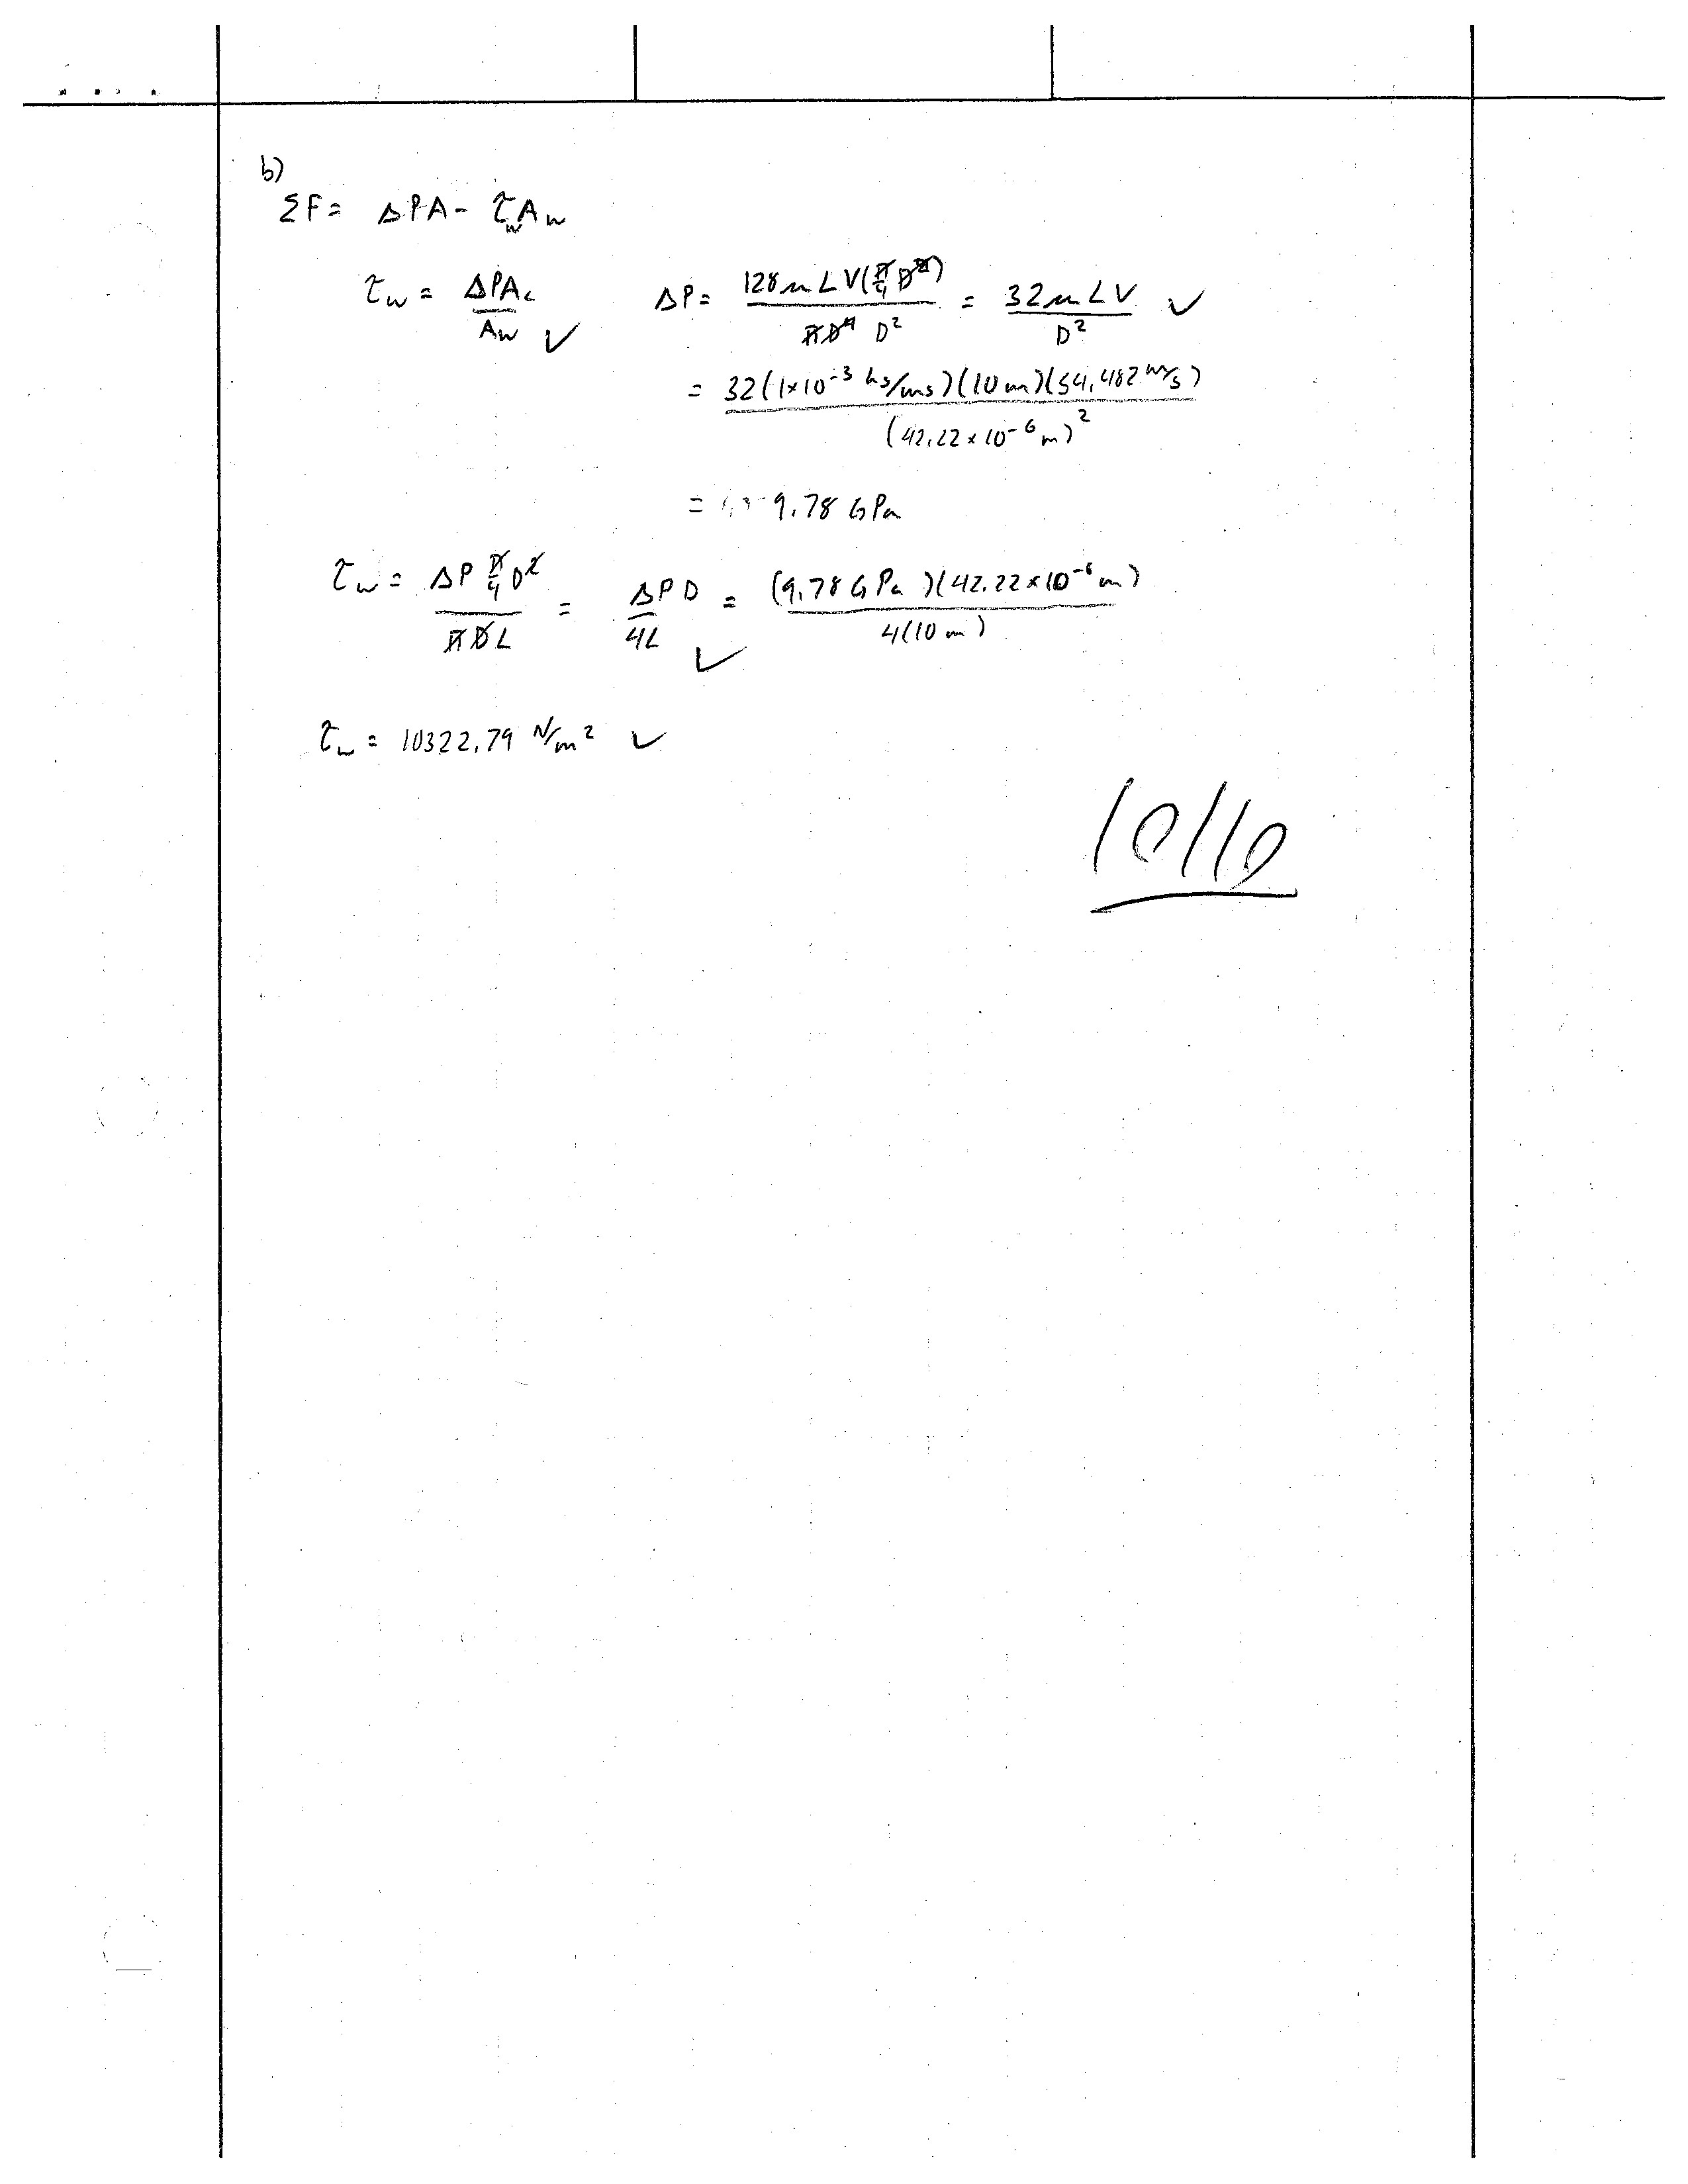 b)
ΣF = ΔPA - τ_w A_w
τ_w = ΔPA_c / A_w ✓ ΔP = 128μLV(π/4 D²) / πD⁴ D² = 32μLV / D² ✓
= 32(1×10⁻³ kg/ms)(10m)(54.482 m/s) / (42.22×10⁻⁶m)²
= 9.78 GPa
τ_w = ΔP π/4 D² / πDL = ΔPD / 4L = (9.78 GPa)(42.22×10⁻⁶m) / 4(10m) ✓
τ_w = 10322.79 N/m² ✓
10/10